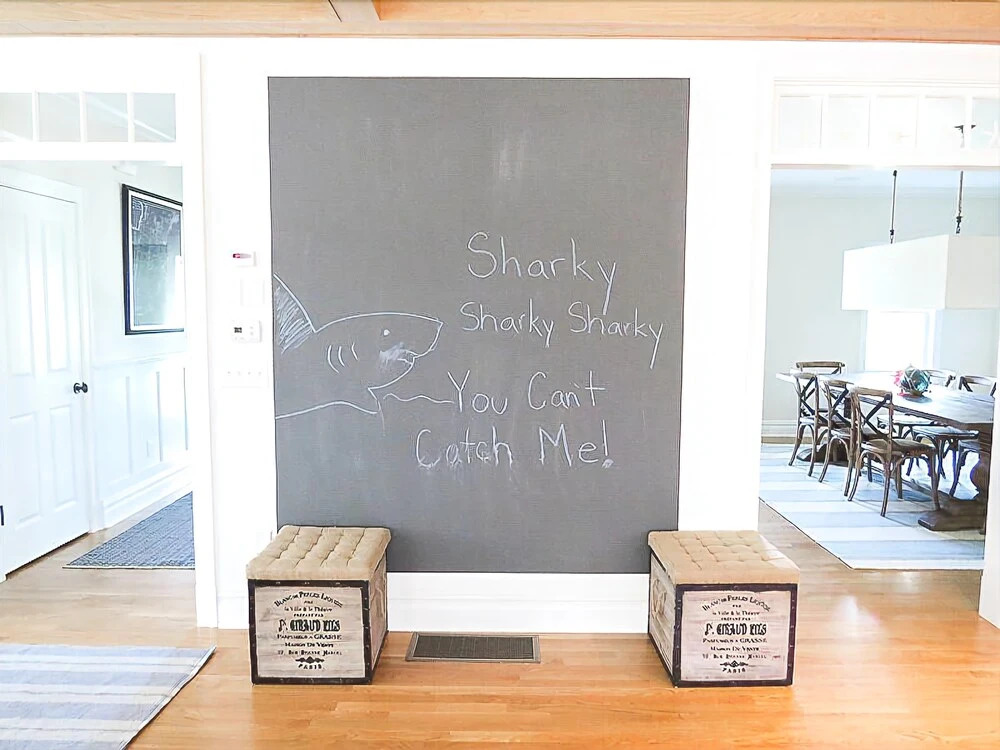 Sharky
Sharky Sharky
You Can't
Catch Me!
BLANC DE PERLES LIQUIDE
PAR
la Ville & le Théatre
PRÉPARÉ PAR
F. GIRAUD FILS
PARFUMEUR A GRASSE
MAISON DE VENTE
PARIS
BLANC DE PERLES LIQUIDE
PAR
la Ville & le Théatre
PRÉPARÉ PAR
F. GIRAUD FILS
PARFUMEUR A GRASSE
MAISON DE VENTE
PARIS